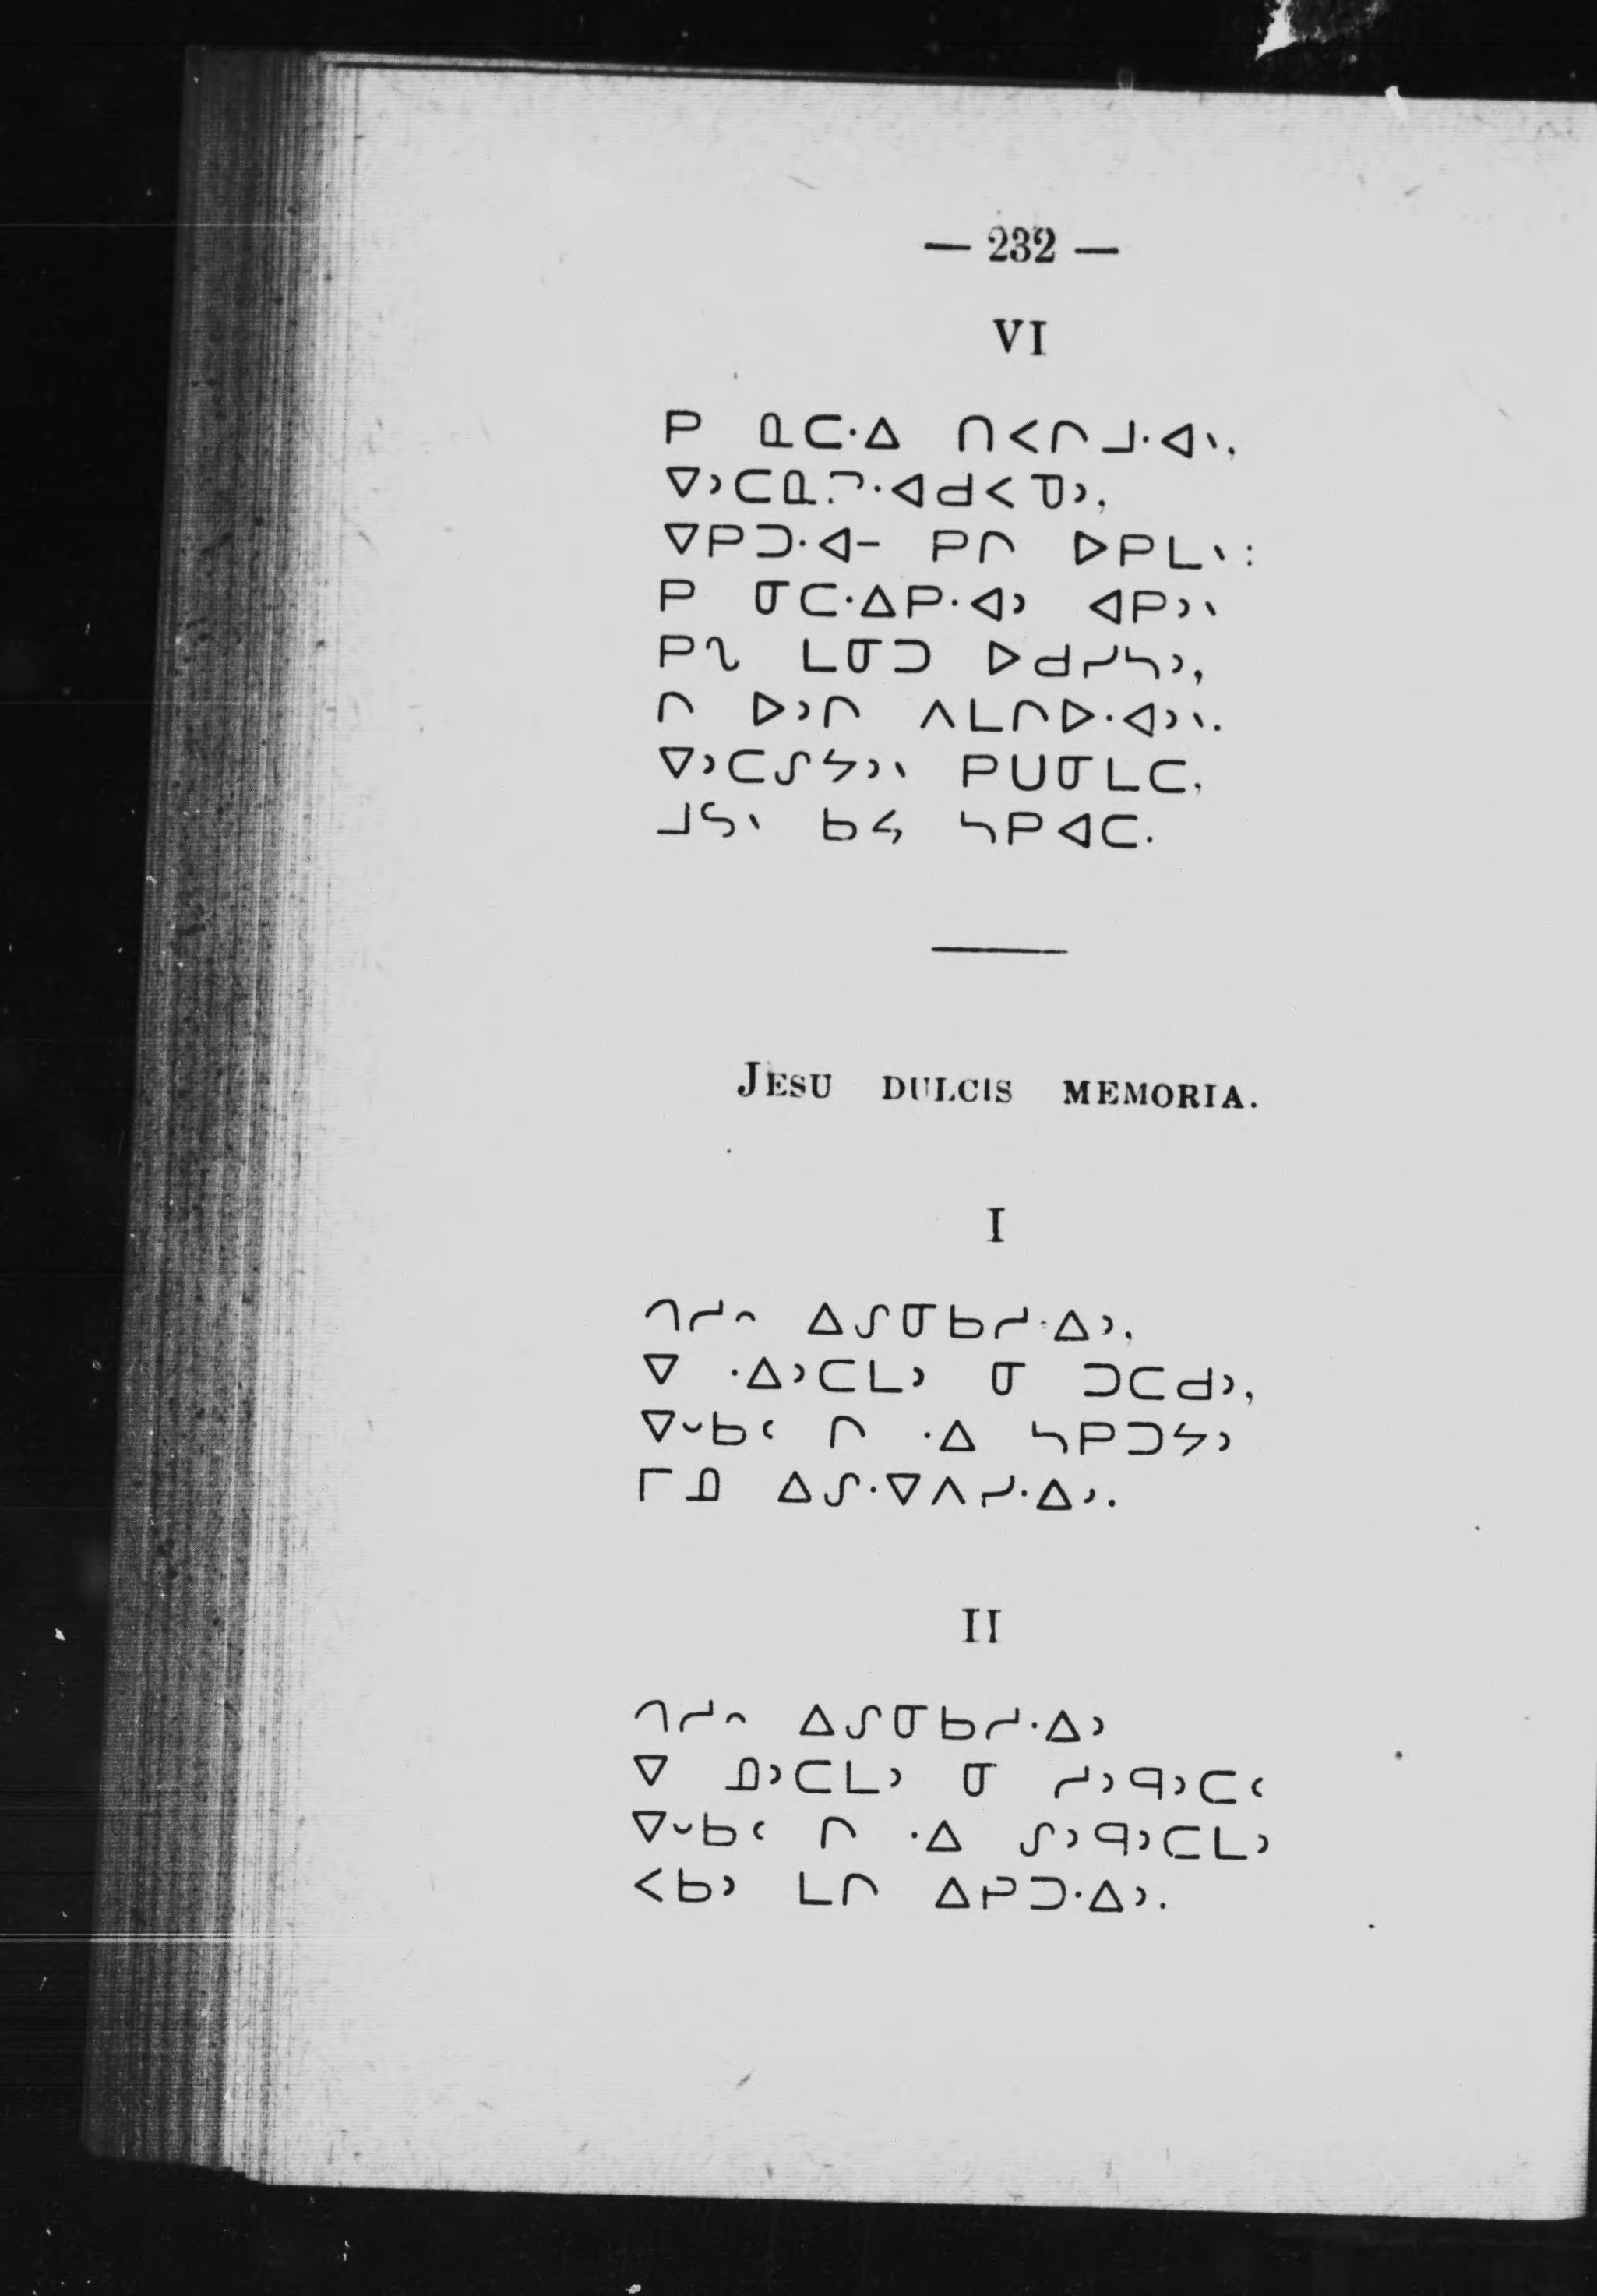 — 232 —
VI
ᑭ ᓇᑕᐧᐃ ᑎᐸᒋᒧᐧᐊᐠ,
ᐁᐣᑕᓇᒣᐧᐊᑯᐸᓀᐣ,
ᐁᑭᑐᐧᐊ– ᑭᒋ ᐅᑭᒪᐠ :
ᑭ ᓂᑕᐧᐃᑭᐧᐊᐣ ᐊᑭᐣᐠ
ᑭᔐ ᒪᓂᑐ ᐅᑯᓯᓴᐣ,
ᒋ ᐅᐣᒋ ᐱᒪᒋᐅᐧᐊᐣᐠ.
ᐁᐣᑕᔑᔭᐣᐠ ᑭᑌᓂᒪᑕ,
ᒧᔕᐠ ᑲᔦ ᓴᑭᐊᑕ.
JESU DULCIS MEMORIA.
I
ᒉᓱᐢ ᐃᔑᓂᑲᓱᐧᐃᐣ,
ᐁ ᐧᐃᐣᑕᒪᐣ ᓂ ᑐᑕᑯᐣ,
ᐁᐡᑲᑉ ᒋ ᐧᐃ ᓴᑭᑐᔭᐣ
ᒥᓄ ᐃᔑᐧᐁᐱᓯᐧᐃᐣ.
II
ᒉᓱᐢ ᐃᔑᓂᑲᓱᐧᐃᐣ
ᐁ ᓄᐣᑕᒪᐣ ᓂ ᓱᐣᑫᐣᑕᑉ
ᐁᐡᑲᑉ ᒋ ᐧᐃ ᔑᐣᑫᐣᑕᒪᐣ
ᐸᑲᐣ ᒪᒋ ᐃᔨᑐᐧᐃᐣ.